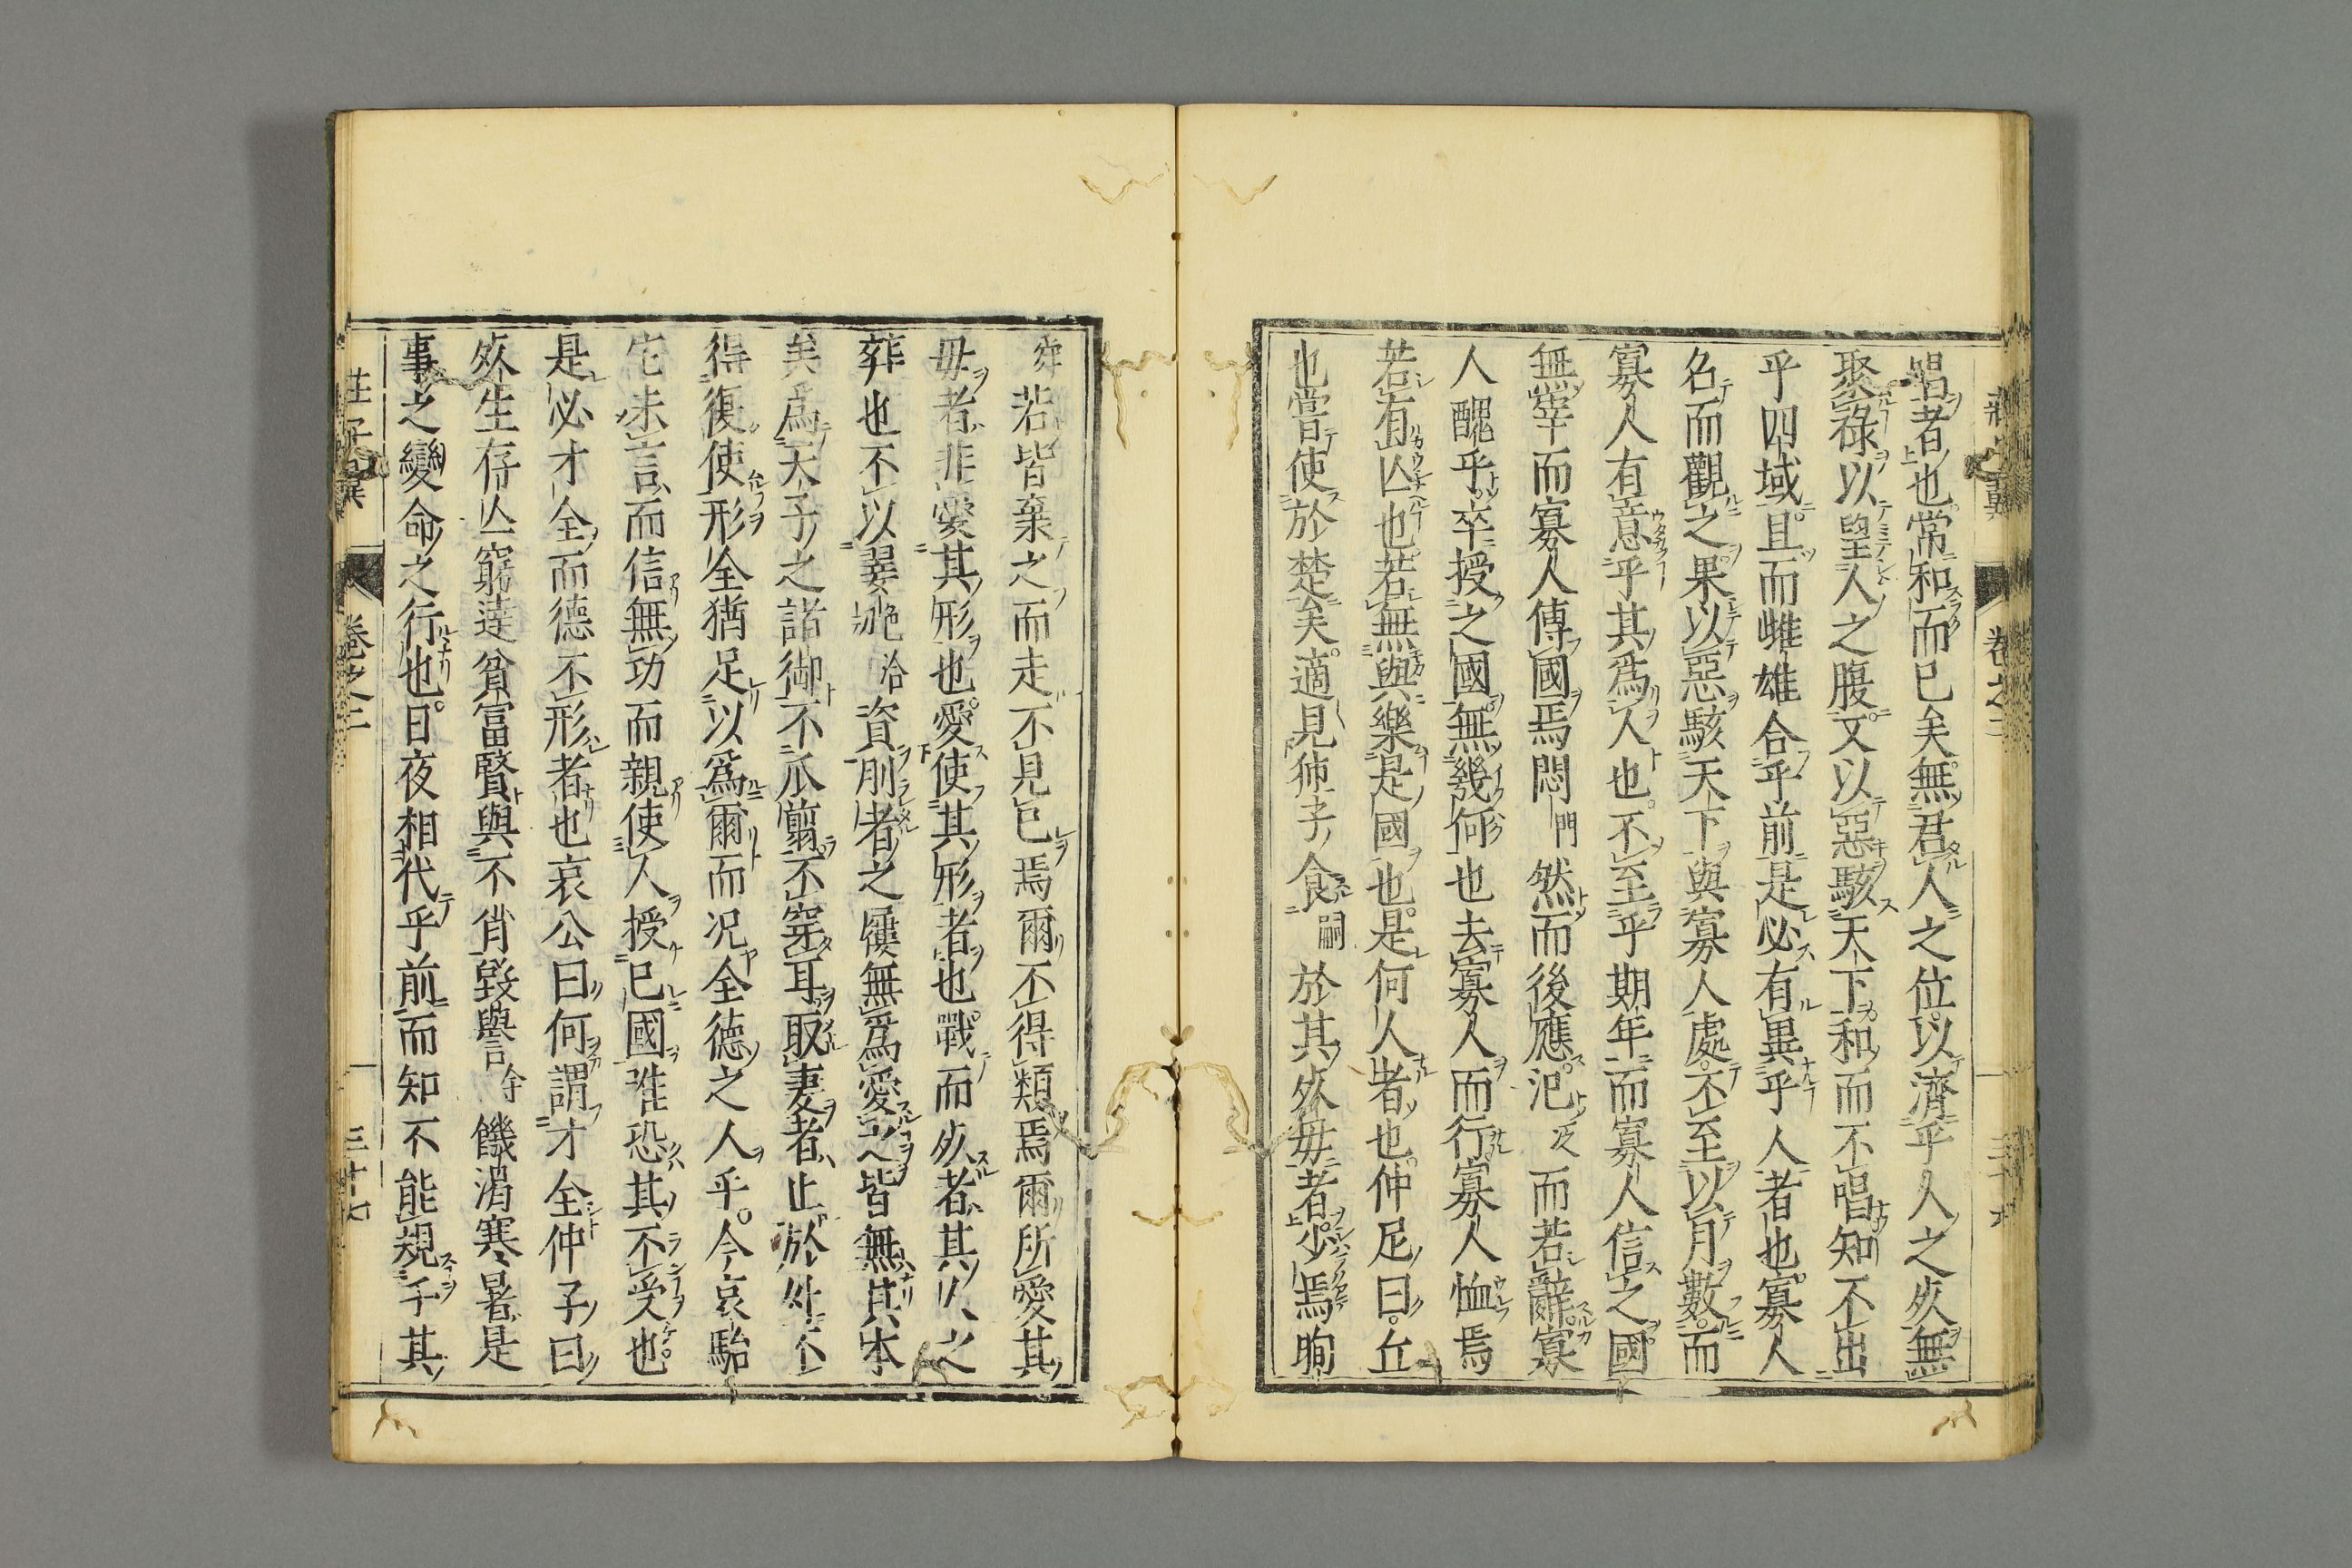 唱者也常和而已矣無君人之位以濟乎人之死無
聚祿以望人之腹又以惡駭天下和而不唱知不出
乎四域且而雌雄合乎前是必有異乎人者也寡人
召而觀之果以惡駭天下與寡人處不至以月數而
寡人有意乎其爲人也不至乎期年而寡人信之國
無宰而寡人傳國焉悶門然而後應氾泛而若辭寡
人醜乎卒授之國無幾何也去寡人而行寡人恤焉
若有亾也若無與樂是國也是何人者也仲尼曰丘
也嘗使於楚矣適見㹠子食嗣於其死母者少焉眴
舜若皆棄之而走不見已焉爾不得類焉爾所愛其
母者非愛其形也愛使其形者也戰而死者其人之
葬也不以翣資刖者之屨無爲愛之皆無其本
矣爲天子之諸御不爪翦不穿耳取妻者止於外不
得復使形全猶足以爲爾而况全德之人乎今哀駘
它未言而信無功而親使人授已國唯恐其不受也
是必才全而德不形者也哀公曰何謂才全仲子曰
死生存亾窮達貧富賢與不肖毀譽饑渴寒暑是
事之變命之行也日夜相代乎前而知不能規乎其
卷之二
三十七
卷之二